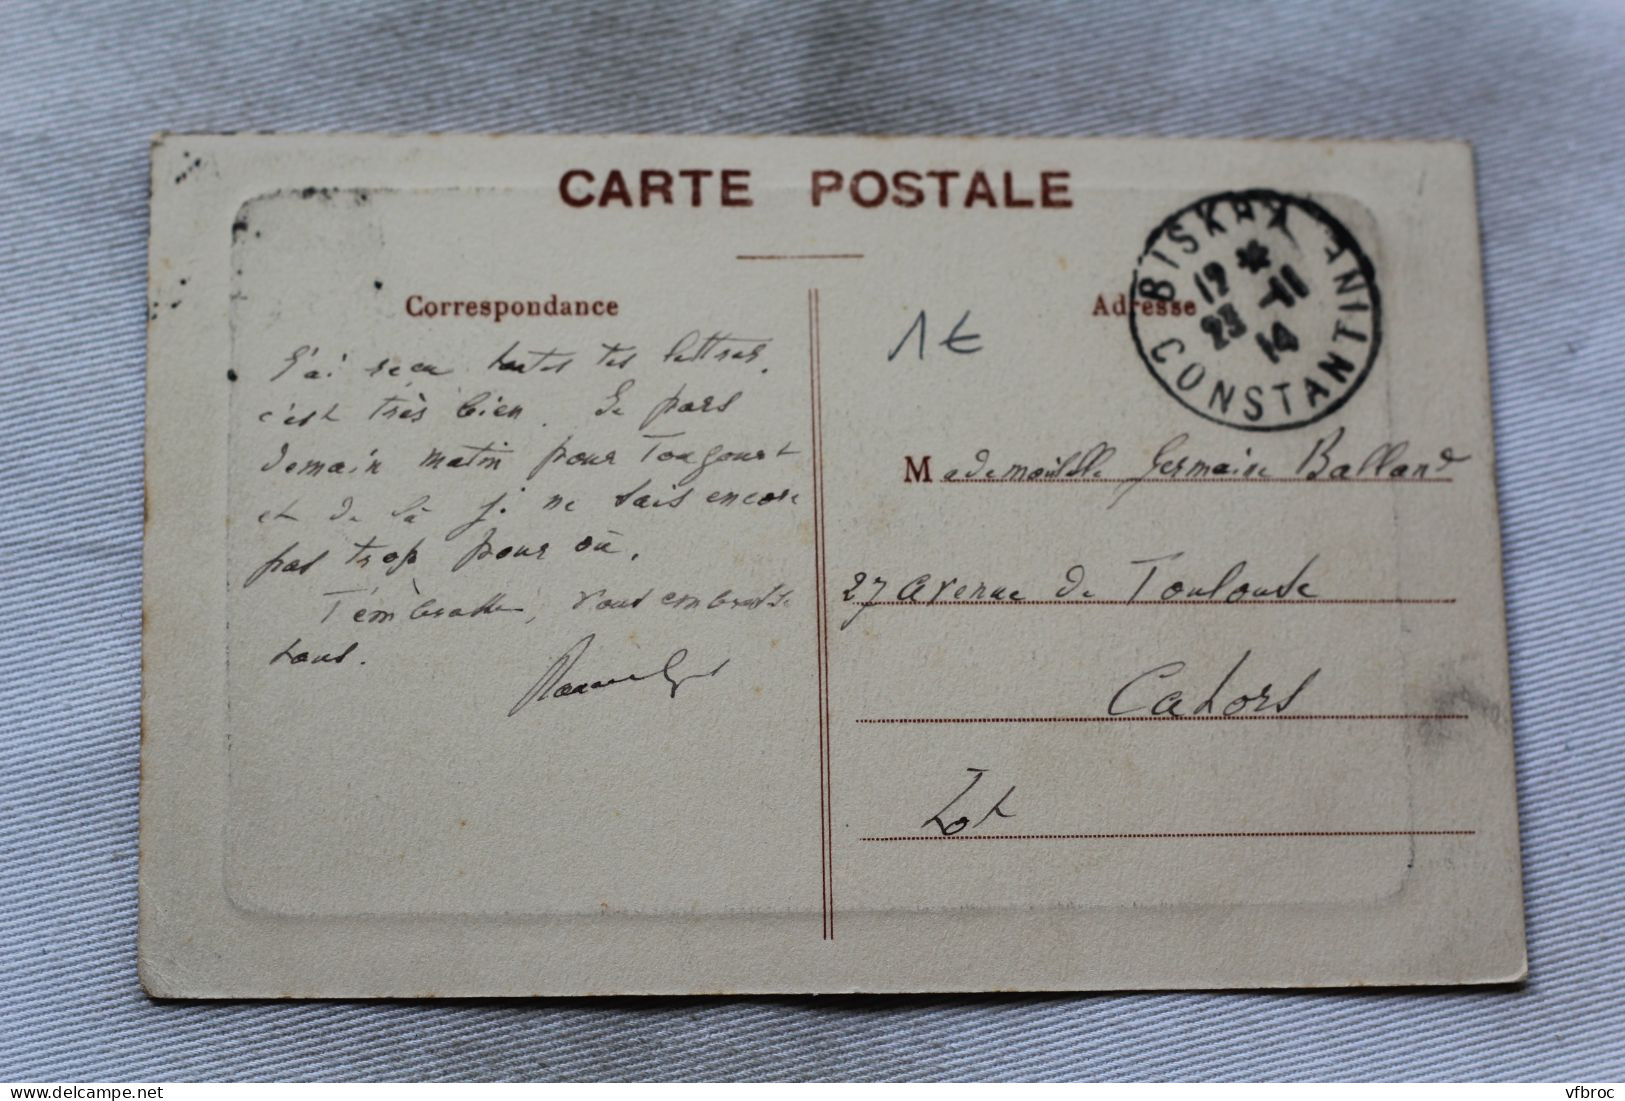 CARTE POSTALE
Correspondance
Adresse
BISKRA
CONSTANTINE
12 * 11
23 14
1€
J'ai reçu toutes tes lettres,
c'est très bien. Je pars
demain matin pour Tougourt
et de là je ne sais encore
pas trop pour où.
T'embrasse, vous embrasse
tous.
Mademoiselle Germaine Balland
27 avenue de Toulouse
Cahors
Lot
© Delcampe vfbroc